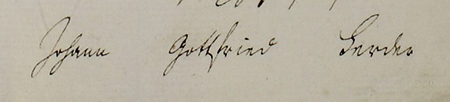 Johann Gottfried Herder